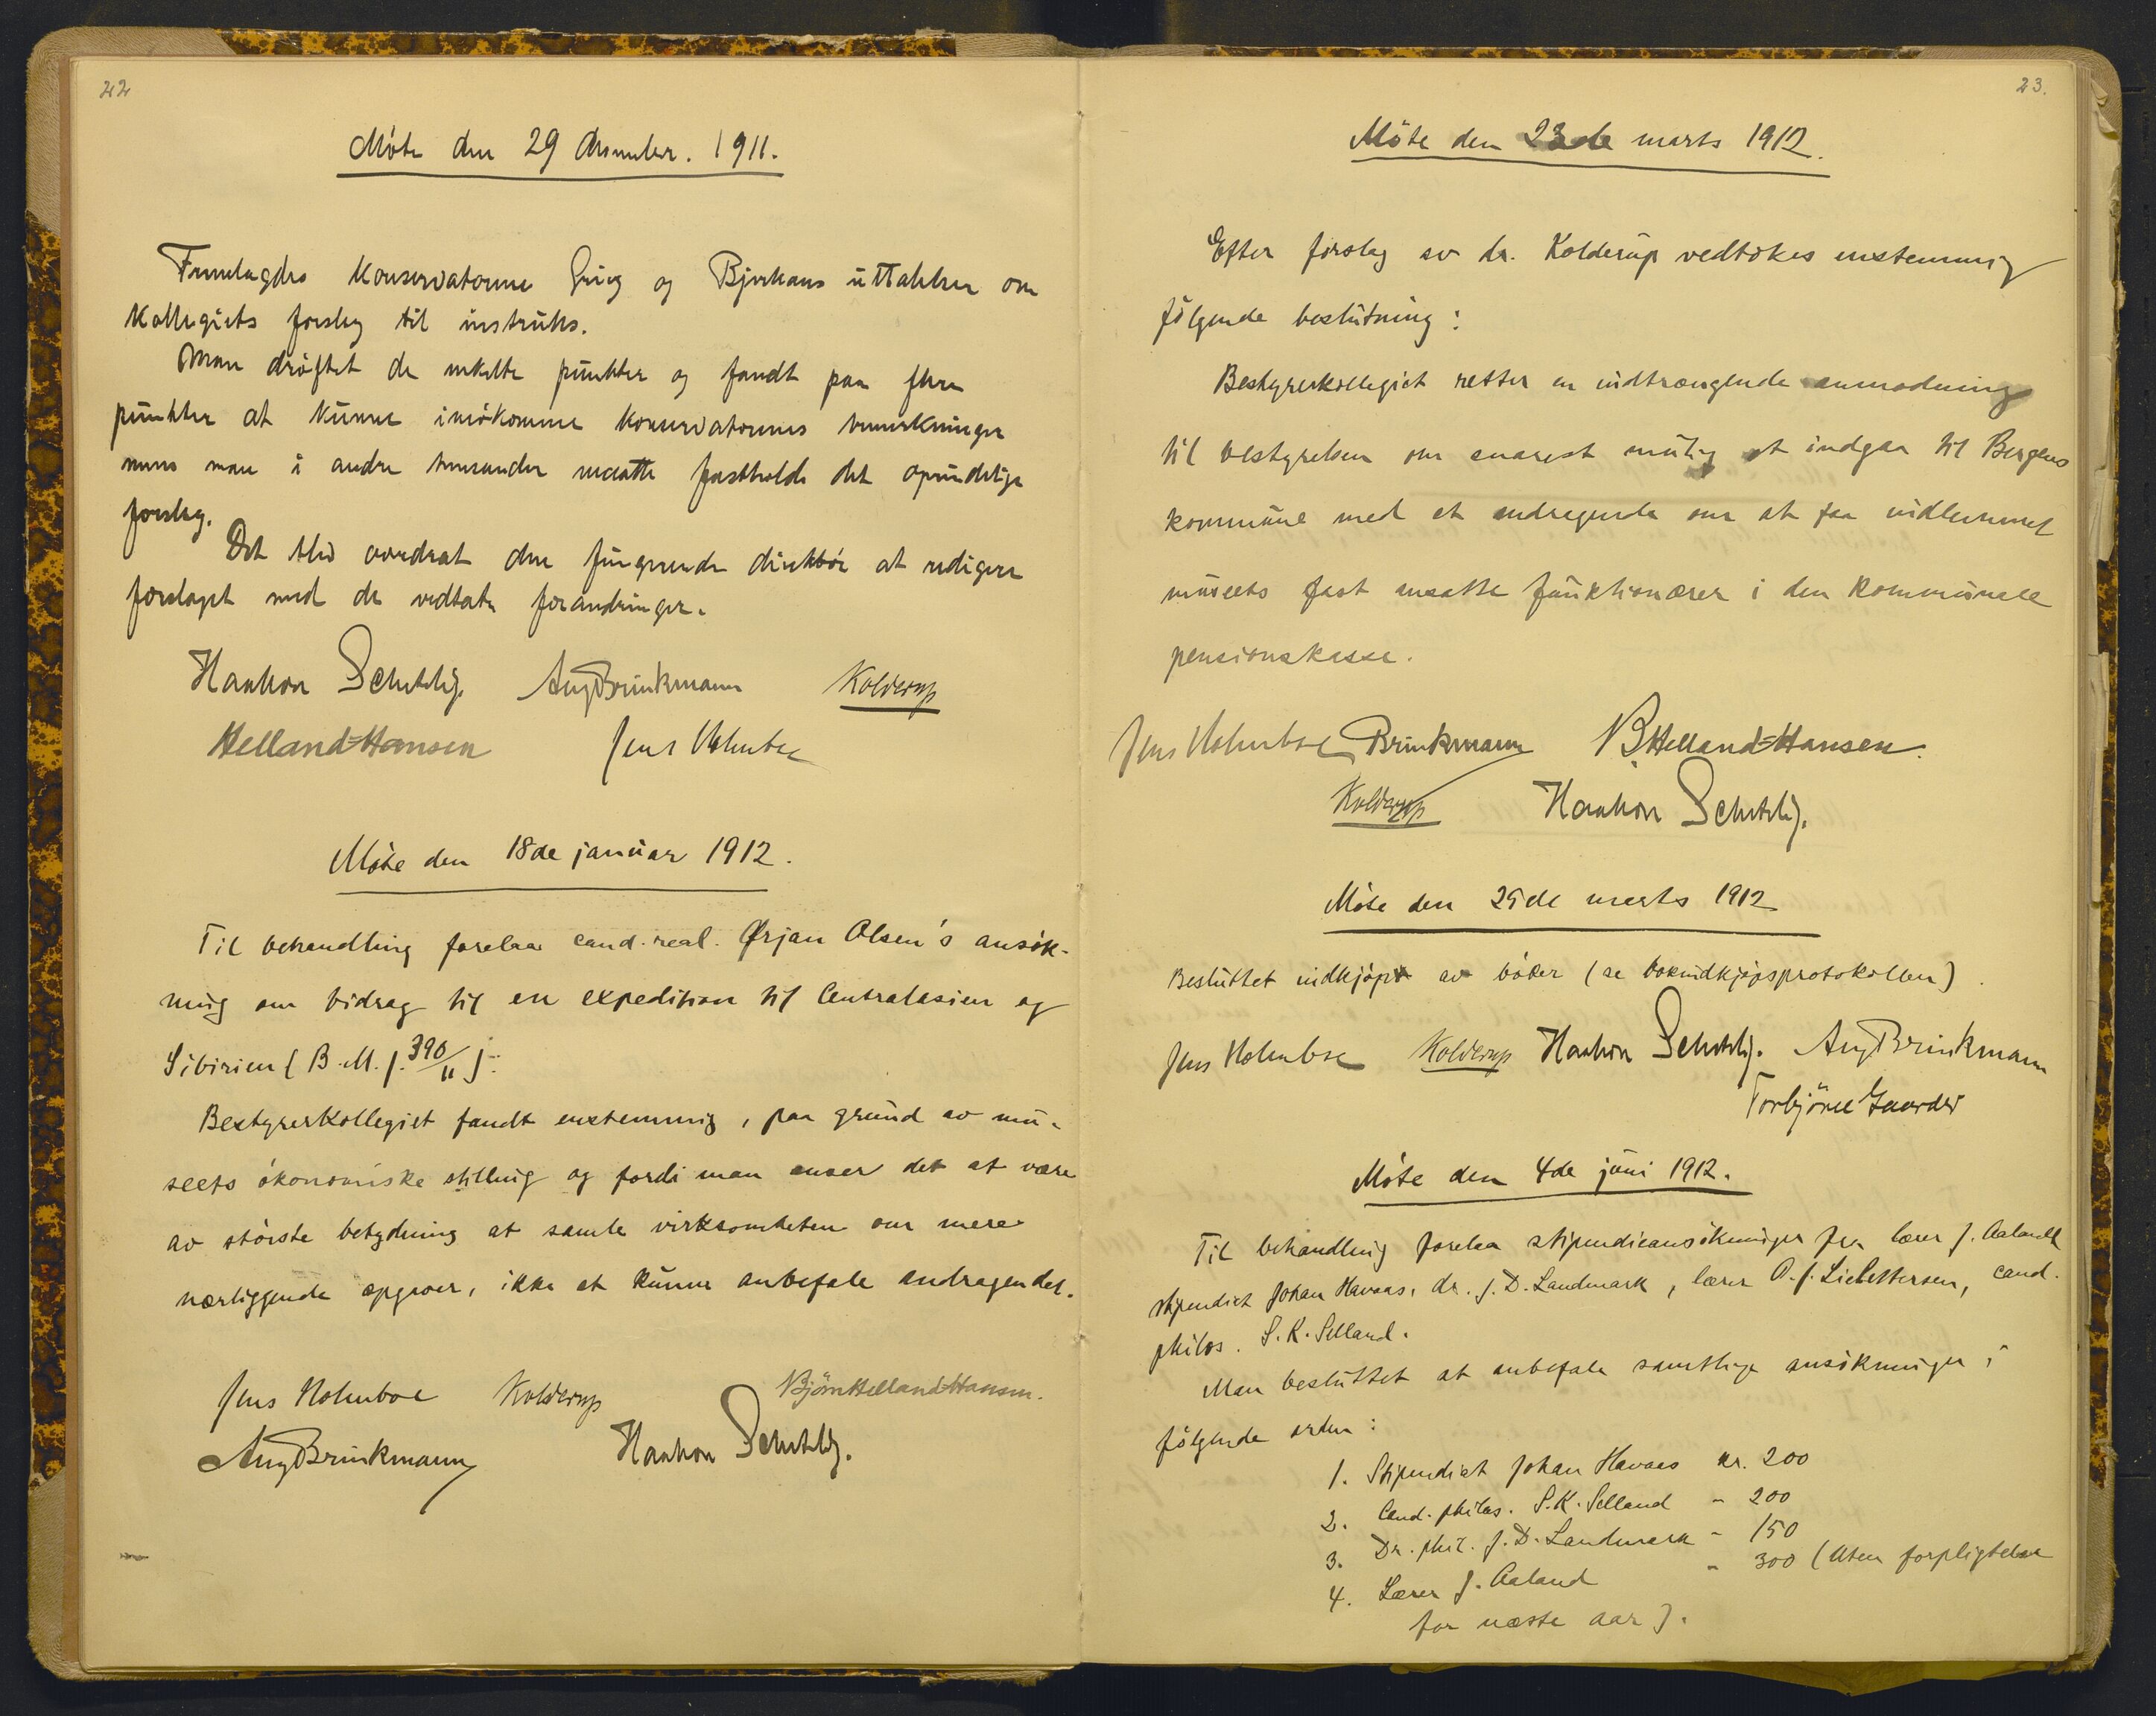 22
Møte den 29 december. 1911.
Fremlagdes konservatorerne Grieg og Bjerkans uttalelser om
kollegiets forslag til instruks.
Man drøftet de enkelte punkter og fandt paa flere
punkter at kunne imøkomme konservatorernes bemerkninger
mens man i andre henseender maatte fastholde det oprindelige
forslag.
Det blev overdrat den fungerende direktør at redigere
forslaget med de vedtatte forandringer.
Haakon Schetelig. Aug Brinkmann Kolderup
Helland-Hansen Jens Holmboe
Møte den 18de januar 1912.
Til behandling forelaa cand. real. Ørjan Olsen's ansøk-
ning om bidrag til en expedition til Centralasien og
Sibirien (B.M. j. 390/11).
Bestyrerkollegiet fandt enstemmig, paa grund av mu-
seets økonomiske stilling og fordi man anser det at være
av største betydning at samle virksomheten om mere
nærliggende opgaver, ikke at kunne anbefale andragendet.
Jens Holmboe Kolderup Bjørn Helland-Hansen.
Aug Brinkmann Haakon Schetelig.
23.
Møte den 23de marts 1912.
Efter forslag av dr. Kolderup vedtokes enstemmig
følgende beslutning:
Bestyrerkollegiet retter en indtrængende anmodning
til bestyrelsen om snarest mulig at indgaa til Bergens
kommune med et andragende om at faa indlemmet
museets fast ansatte funktionærer i den kommunale
pensionskasse.
Jens Holmboe Brinkmann B. Helland-Hansen.
Kolderup Haakon Schetelig.
Møte den 25de marts 1912
Besluttet indkjøp av bøker (se bokindkjøpsprotokollen).
Jens Holmboe Kolderup Haakon Schetelig. Aug Brinkmann
Torbjørn Gaarder
Møte den 4de juni 1912.
Til behandling forelaa stipendieansøkninger fra lærer J. Aaland
stipendiat Johan Havaas, dr. J. D. Landmark, lærer O. J. Lie-Pettersen, cand.
philos. S. K. Selland.
Man besluttet at anbefale samtlige ansøkninger i
følgende orden:
1. Stipendiat Johan Havaas kr. 200
2. Cand. philos. S. K. Selland - 200
3. Dr. phil. J. D. Landmark - 150
4. Lærer J. Aaland - 300 (Uten forpligtelse
for næste aar).